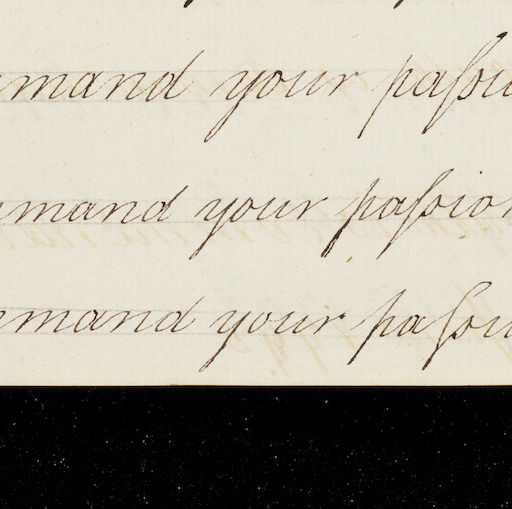 mmand your paſsi
mmand your paſsion
mmand your paſsi